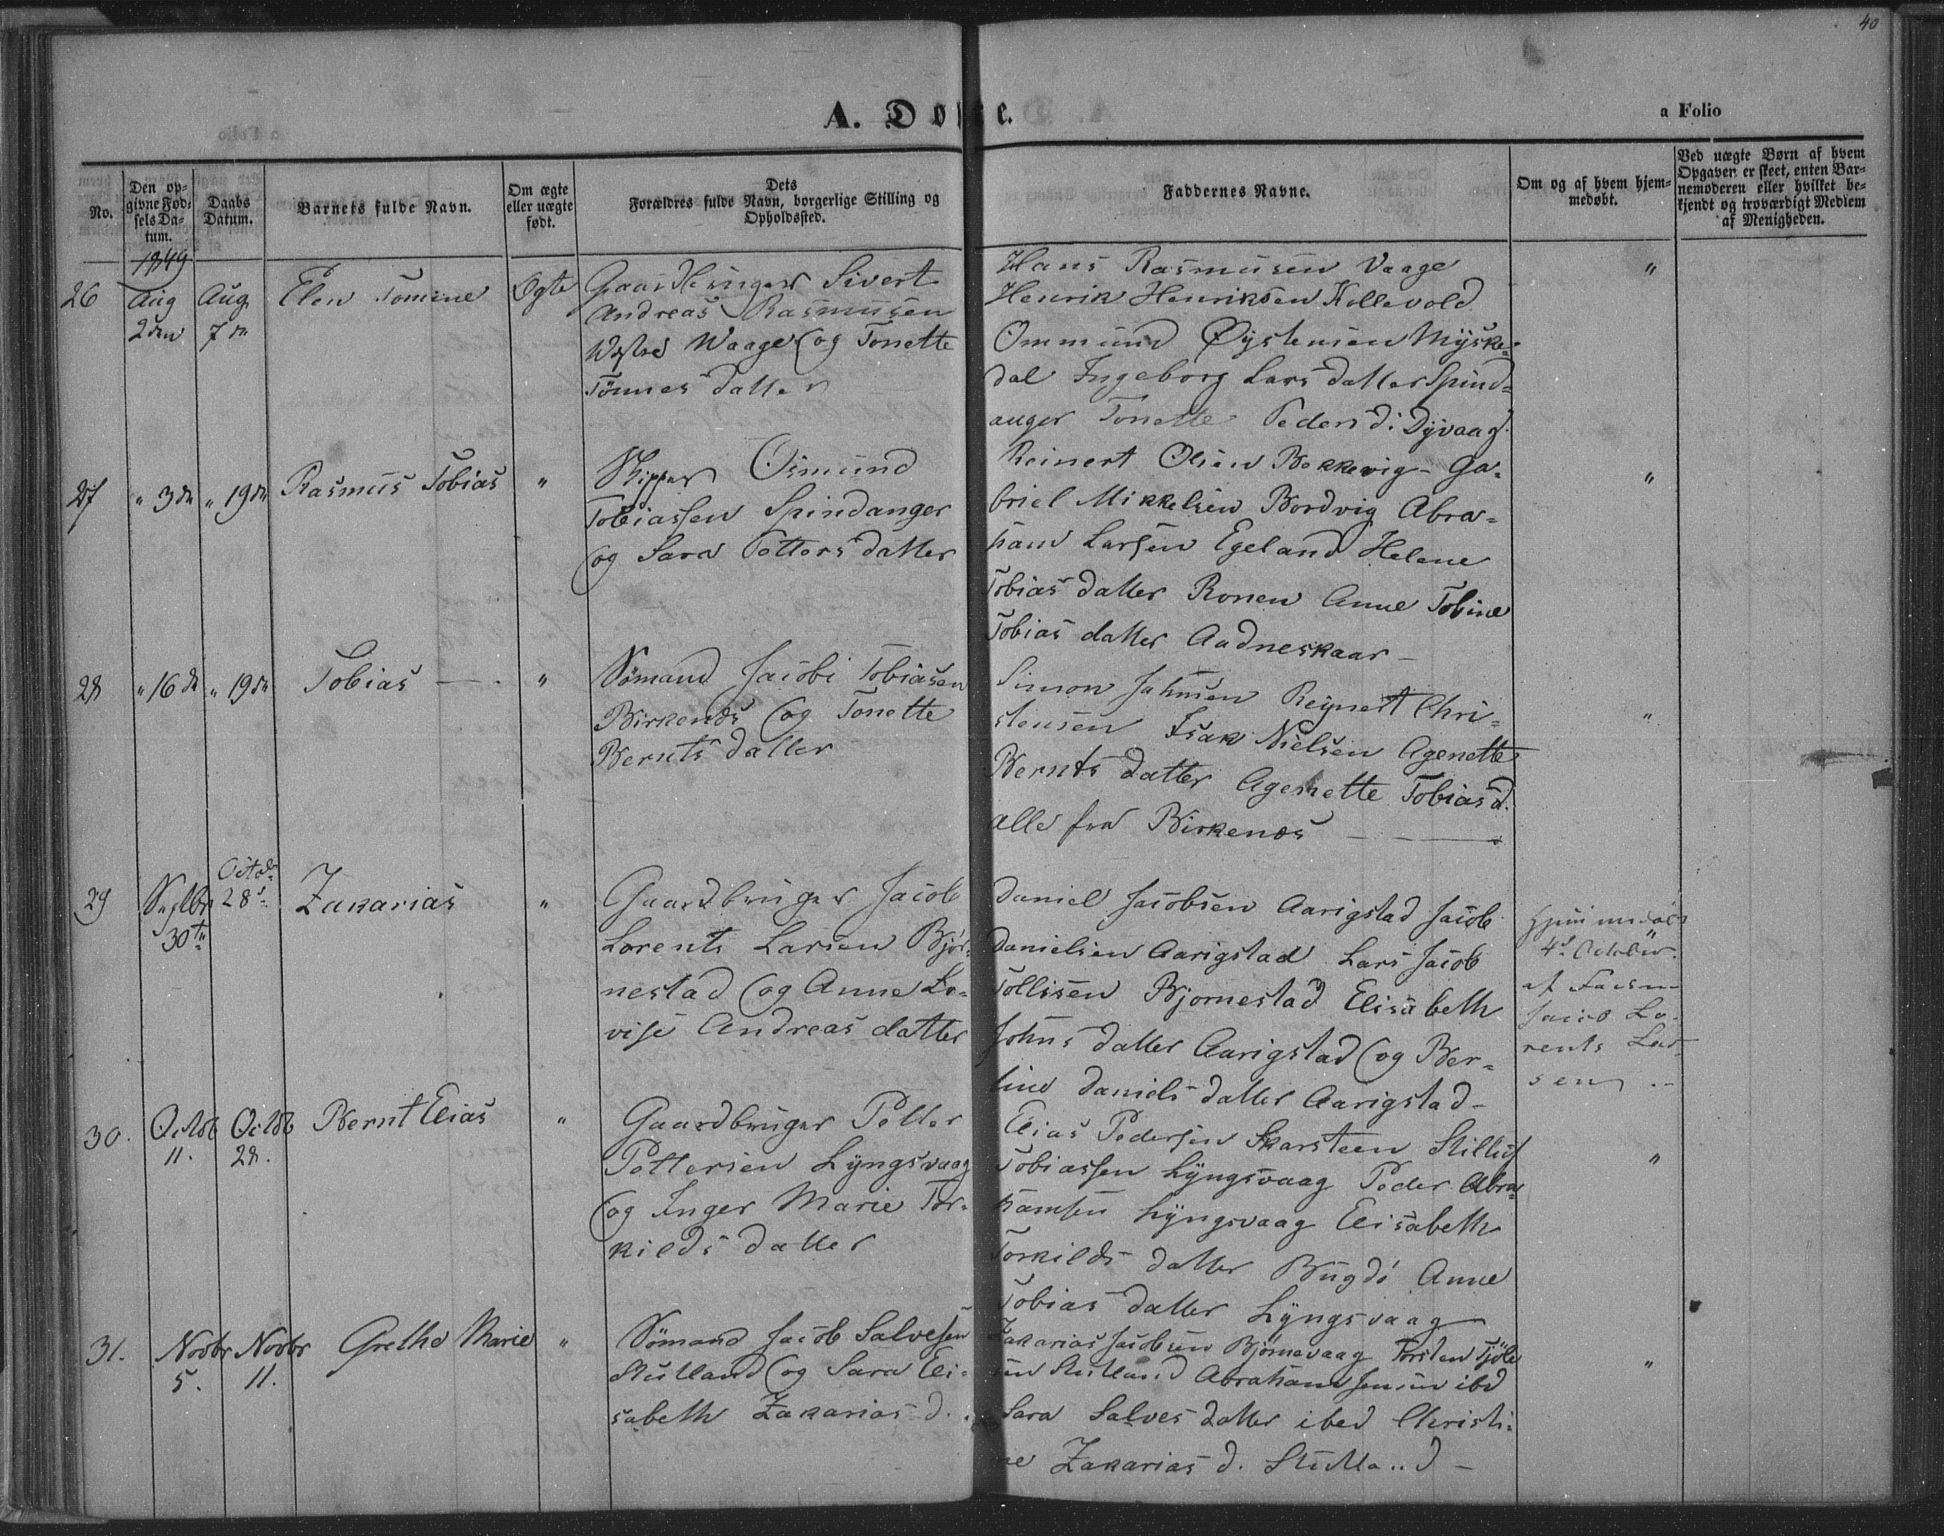 40
A. Døbte.
a Folio
No.
Den op-
givne Fød-
sels Da-
tum.
Daabs
Datum.
Barnets fulde Navn.
Om ægte
eller uægte
født.
Dets
Forældres fulde Navn, borgerlige Stilling og
Opholdssted.
Faddernes Navne.
Om og af hvem hjem-
medøbt.
Ved uægte Børn af hvem
Opgaven er skeet, enten Bar-
nemoderen eller hvilket be-
kjendt og troværdigt Medlem
af Menigheden.
1849
26
Aug
2den
Aug.
7de
Elen Tomine
Ægte
Gaardbruger Sivert
Andreas Rasmusen
Vestre Waage og Tonette
Tönnes datter
Hans Rasmusen Vaage
Henrik Henriksen Kollevold
Ommund Øystensen Myske-
dal Ingeborg Lars datter Spind-
anger Tonette Peders d: Dyvaag.
"
27
" 3de
" 19de
Rasmus Tobias
"
Skipper Osmund
Tobiassen Spindanger
og Sara Petters datter
Reinert Olsen Bekkevig - Ga-
briel Mikkelsen Bordvig Abra-
ham Larsen Egeland Helene
Tobias datter Ronen Anne Tobine
Tobias datter Aadneskaar -
"
28
" 16de
" 19de
Tobias
"
Sømand Jacobi Tobiasen
Birkenæs og Tonette
Bernts datter
Simon Johnsen Reinert Chri-
stensen Isak Nielsen Agenette
Bernts datter Agenette Tobias d.
alle fra Birkenæs
"
29
Septbr
30te
Octob:
28de
Zakarias
"
Gaardbruger Jacob
Lorents Larsen Bjør-
nestad og Anne Lo-
vise Andreas datter
Daniel Jacobsen Aarigstad Jacob
Danielsen Aarigstad Lars Jacob
Tollisen Bjornestad Elisabeth
Johns datter Aarigstad og Ber-
tine Daniels datter Aarigstad -
Hjemmedøbt
4de October
af Faderen
Jacob Lo-
rents Lar-
sen
30.
Octob
11.
Octob
28.
Bernt Elias
"
Gaardbruger Petter
Pettersen Lyngsvaag
og Inger Marie Tor-
kilds datter
Elias Pedersen Skarsteen
Tobiassen Lyngsvaag Peder Abra-
hamsen Lyngsvaag Elisabeth
Torkilds datter Bugdø Anne
Tobias datter Lyngsvaag
"
31.
Novbr
5.
Novbr
11.
Grethe Marie
"
Sømand Jacob Salvesen
Stutland og Sara Eli-
sabeth Zakarias d.
Zakarias Jacobsen Bjørnevaag Torsten
Stutland Abraham Jensen ibd
Sara Salves datter ibed Christi-
ne Zakarias d. Stutland -
"